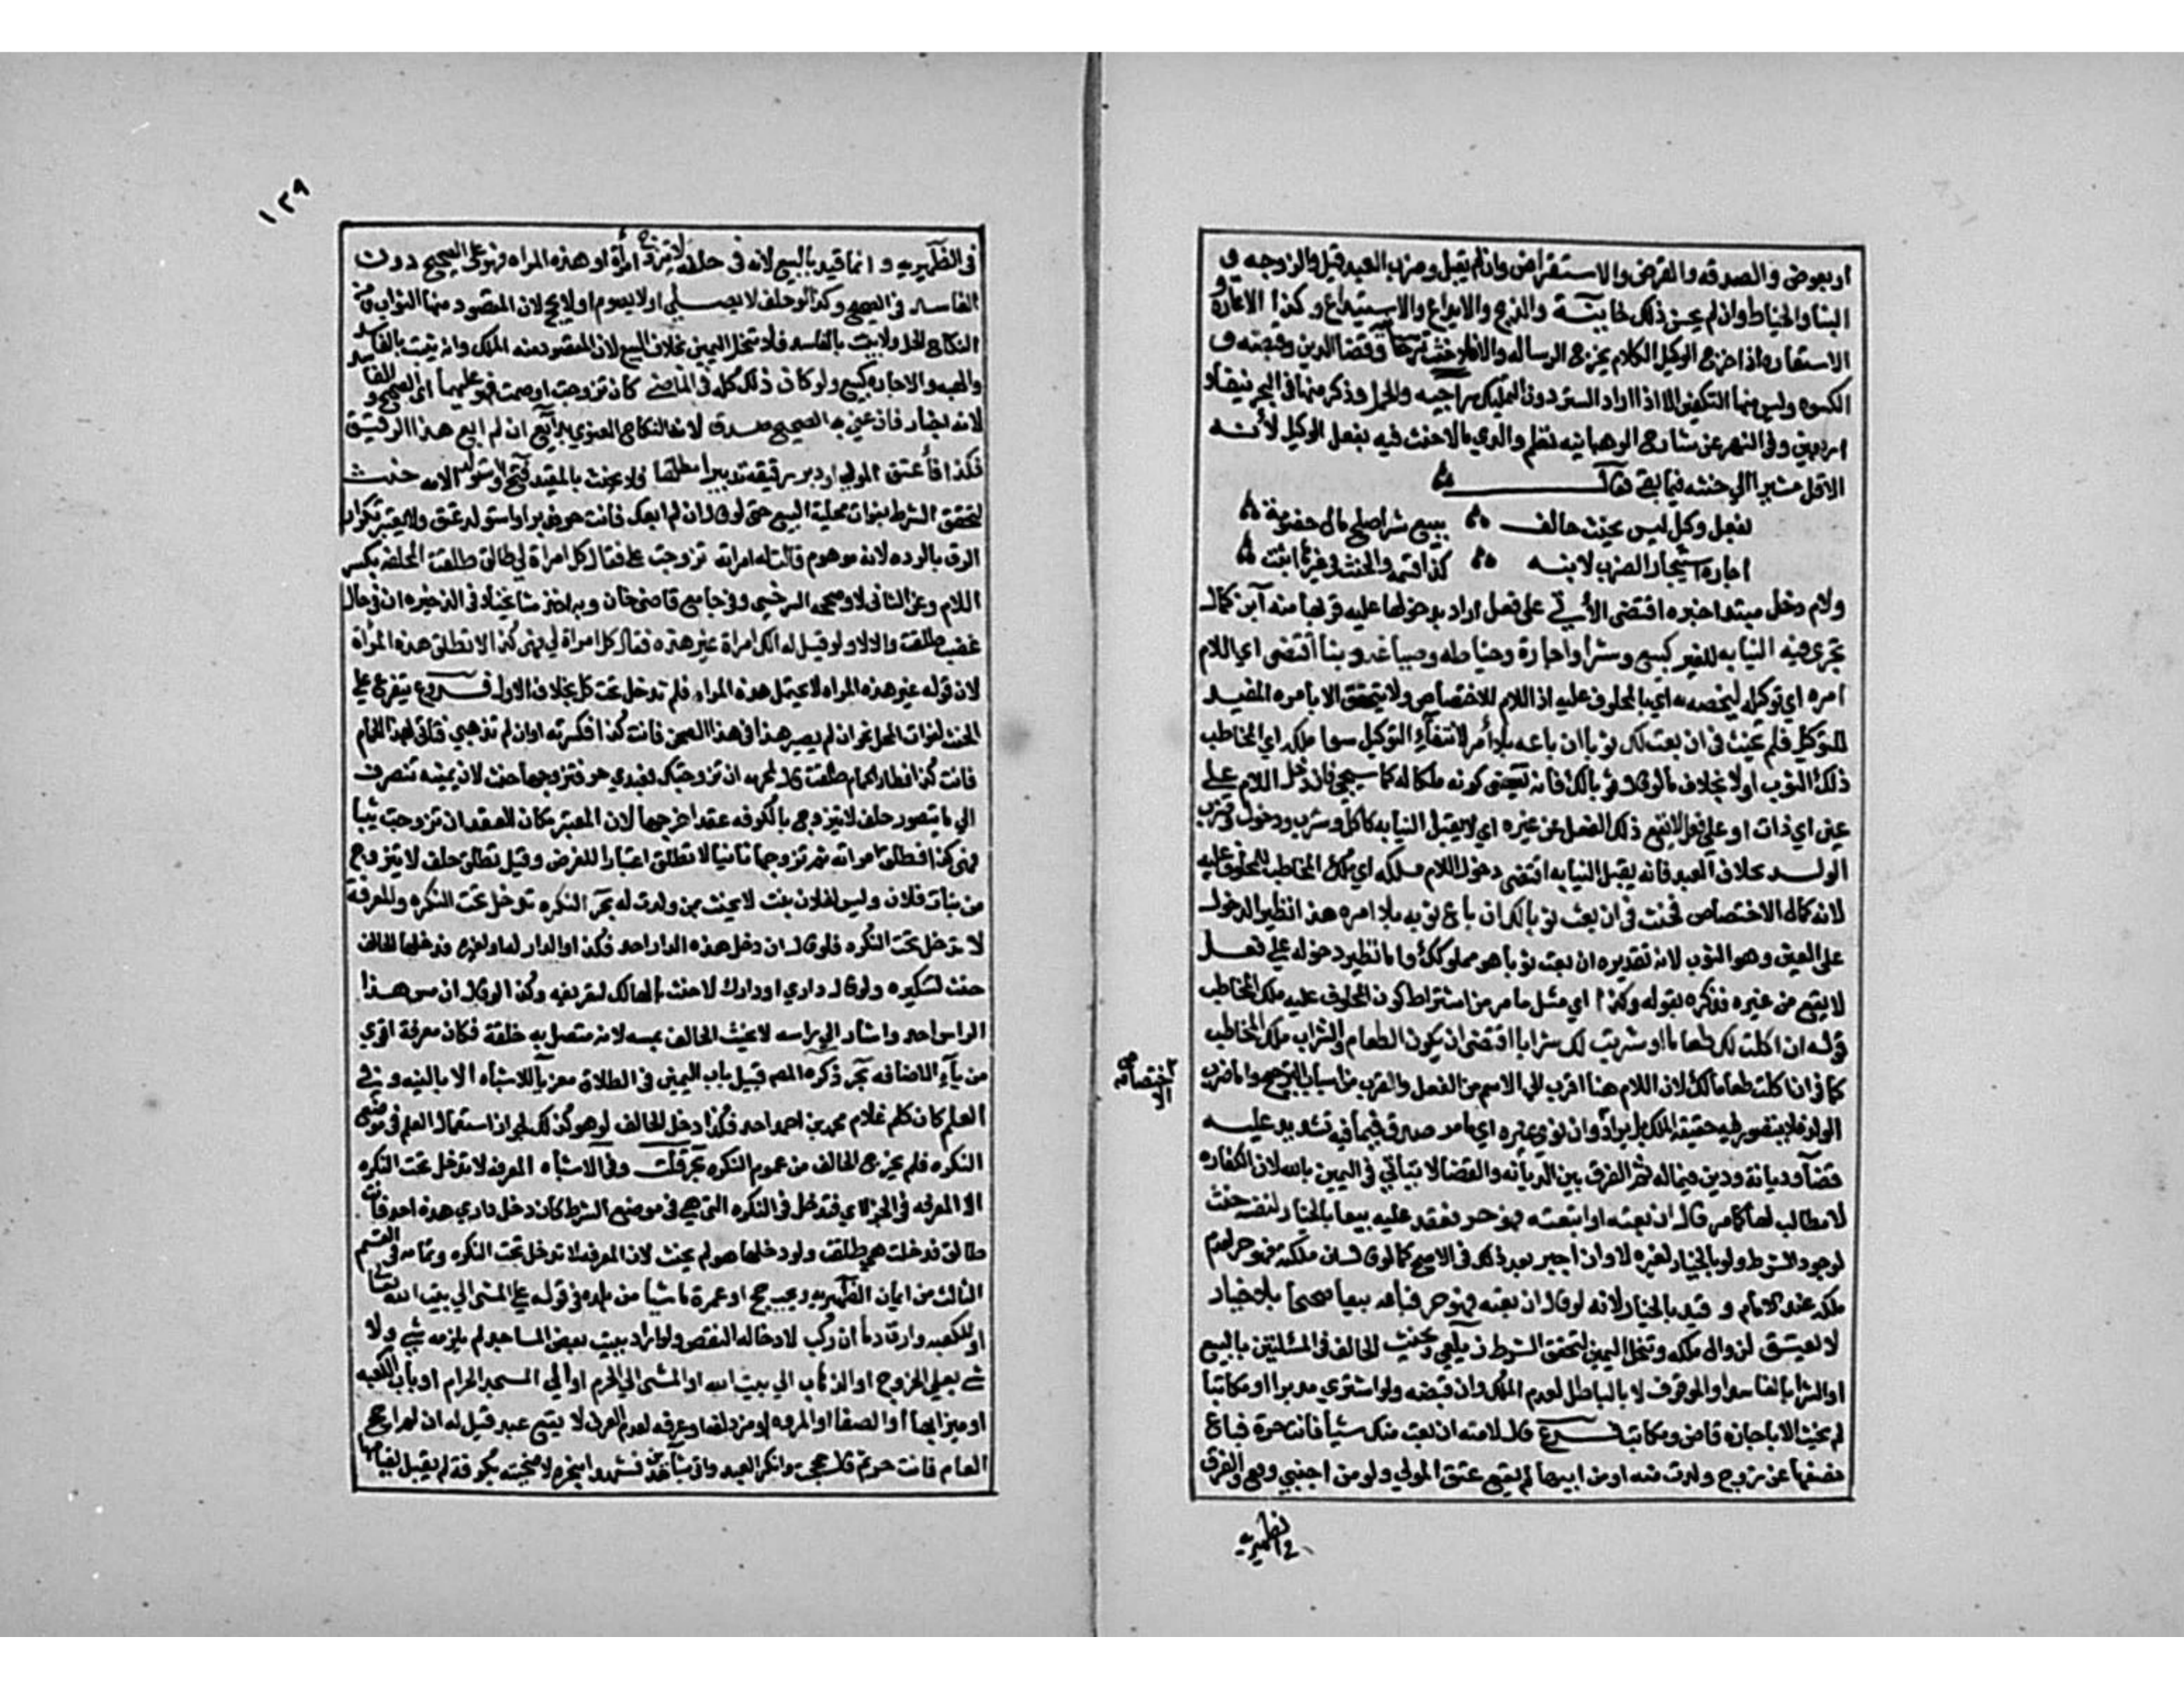 او بعوض والصدقه والقرض والاستقراض وان لم يقبل وضرب العبد قيل والزوجه و
البنا والخياطه وان لم يحسن ذلك خانيه والذبح والايداع والاستيداع وكذا الاعاره و
الاستعاره اذا اخرج الوكيل الكلام مخرج الرساله والا فلا حنث وقضا الدين وقبضه و
الكسوه وليس منها التكفين الا اذا اراد الستر دون التمليك سراجيه والحمل وذكر منها في البحر نيفا و
اربعين وفي النهر عن شارح الوهبانيه نظم والدي ما لا حنث فيه بفعل الوكيل لانه
الاقل مشيرا الي حنثه فيما بقي فقال
بفعل وكيل ليس يحنث حالف ببيع شرا صلح مال خصومة
اجارة استيجار الضرب لابنه كذا قسمة والحنث في غيرها اثبت
ولام دخل مبتدا خبره اقتضى الاتي على فعل اراد بدخولها عليه قربها منه ابن كمال
تجري فيه النيابه للغير كبيع وشرا واجارة وخياطه وصباغه وبنا اقتضى اي اللام
امره اي توكيله ليخصه به اي بالمحلوف عليه اذ اللام للاختصاص ولا يتحقق الا بامره المفيد
للتوكيل فلم يحنث في ان بعت لك ثوبا ان باعه بلا امر لانتفاء التوكيل سوا ملكه اي المخاطب
ذلك الثوب او لا بخلاف ما لو قال ثوبا لك فانه يقتضي كونه ملكا له كما سيجي فان دخل اللام على
عين اي ذات او على فعل لا يقع ذلك الفعل عن غيره اي لا يقبل النيابه كاكل وشرب ودخول وضرب
الولد بخلاف العبد فانه يقبل النيابه اقتضى دخول اللام ملكه اي ملك المخاطب للمحلوف عليه
لانه كمال الاختصاص فحنث في ان بعت ثوبا لك ان باع ثوبه بلا امره هذا نظير الدخول
على العين وهو الثوب لان تقديره ان بعت ثوبا هو مملوك لك واما نظير دخوله على فعل
لا يقع عن غيره فذكره بقوله وكذا اي مثل ما مر من اشتراط كون المحلوف عليه ملك المخاطب
قوله ان اكلت لك طعاما او شربت لك شرابا اقتضى ان يكون الطعام والشراب ملك المخاطب
كما في ان اكلت طعاما لك لان اللام هنا اقرب الى الاسم من الفعل والقرب من اسباب الترجيح واما ضرب
الولد فلا يتصور فيه حقيقة الملك بل يراد وان نوى غيره اي ما مر صدق فيما فيه تشديد عليه
قضا وديانة ودين فيما له ثم الفرق بين الديانه والقضا لا يتاتي في اليمين بالله لان الكفاره
لا مطالب لها كما مر قال ان بعته او ابتعته فهو حر فعقد عليه بيعا بالخيار لنفسه حنث
لوجود الشرط ولو بالخيار لغيره لا وان اجيز بعد ذلك في الاصح كما لو قال ان ملكته فهو حر لعدم
ملكه عند الامام و قيد بالخيار لانه لو قال ان بعته فهو حر فباعه بيعا صحيحا بلا خيار
لا يعتق لزوال ملكه وتنحل اليمين لتحقق الشرط زيلعي ويحنث الحالف في المسئلتين بالبيع
او الشرا بالفاسد او الموقوف لا بالباطل لعدم الملك وان قبضه ولو اشترى مدبرا او مكاتبا
لم يحنث الا باجازة قاض ومكاتب فرع قال لامته ان بعت منك شيا فانت حرة فباع
نصفها من زوج ولدت منه او من ابيها لم يقع عتق المولي ولو من اجنبي وقع والفرق
في الظهيريه
الاختصاص
١٢٩
في الظهيريه وانما قيد بالبيع لانه في حلفه لا يتزوج امرأة او هذه المراه فهو على الصحيح دون
الفاسد في الصحيح وكذا لو حلف لا يصلي او لا يصوم او لا يحج لان المقصود منها الثواب ومن
النكاح الحل ولا يثبت بالفاسد فلا تنحل اليمين بخلاف البيع لان المقصود منه الملك وانه يثبت بالفاسد
والهبه والاجاره كبيع ولو كان ذلك كله في الماضي كان تزوجت او صمت فهو عليهما اي الصحيح والفاسد
لانه اخبار فان عنى به الصحيح صدق لانه النكاح المعنوي بدايع ان لم ابع هذا الرقيق
فكذا فاعتق المولي او دبر رقيقه تدبيرا مطلقا فلا يحنث بالمقيد فتح او استولد الامه حنث
لتحقق الشرط بفوات محلية البيع حتى لو قال ان لم ابعك فانت حر فدبر او استولد عتق ولا يعتبر تكرار
الرق بالرده لانه موهوم قالت له امراته تزوجت علي فقال كل امراة لي طالق طلقت المحلفه بكسر
اللام وعن الثاني لا وصححه السرخسي وفي جامع قاضي خان وبه اخذ مشايخنا وفي الذخيره ان في حال
غضب طلقت والا لا ولو قيل له الك امراة غير هذه فقال كل امراة لي فهي كذا لا تطلق هذه المرأة
لان قوله غير هذه المراه لا يحتمل هذه المراه فلم تدخل تحت كل بخلاف الاول فروع يتفرع على
الحنث لفوات المحل نحو ان لم يصر هذا في هذا الصحن فانت كذا فكسرته او ان لم تذهبي فتاتي بهذا الحمام
فانت كذا فطار الحمام طلقت قال لمحرمه ان تزوجتك فعبدي حر فتزوجها حنث لان يمينه تنصرف
الي ما يتصور حلف لا يتزوج بالكوفه عقد خارجها لان المعتبر مكان العقد ان تزوجت ثيبا
فهي كذا فطلق امراته ثم تزوجها ثانيا لا تطلق اعتبارا للغرض وقيل تطلق حلف لا يتزوج
من بنات فلان وليس لفلان بنت لا يحنث بمن ولدت له بحر النكره تدخل تحت النكره والمعرفة
لا تدخل تحت النكره فلو قال ان دخل هذه الدار احد فكذا والدار له او لغيره فدخلها الحالف
حنث لتنكيره ولو قال داري او دارك لا حنث بالحالف لتعريفه وكذا لو قال ان مس هذا
الراس احد واشار الي راسه لا يحنث الحالف بمسه لانه متصل به خلقة فكان معرفة اقوي
من ياء الاضافه بحر ذكره المص قبيل باب اليمين في الطلاق معزيا للاشباه الا بالنيه وفي
العلم كان كلم غلام محمد بن احمد احد فكذا دخل الحالف لو هو كذلك لجواز استعمال العلم في موضع
النكره فلم يخرج الحالف من عموم النكره بحر قلت وفي الاشباه المعرفه لا تدخل تحت النكره
الا المعرفه في الجزاء اي فتدخل في النكره التي هي في موضع الشرط كان دخل داري هذه احد فانت
طالق فدخلت هي طلقت ولو دخلها هو لم يحنث لان المعرفه لا تدخل تحت النكره وتمامه في القسم
الثالث من ايمان الظهيريه ويجب حج او عمرة ماشيا من بلده في قوله علي المشي الي بيت الله تعالى
او الكعبه واراق دما ان ركب لادخاله النقص ولو اراد ببيت بعض المساجد لم يلزمه شي ولا
شي بعلي الخروج او الذهاب الي بيت الله او المشي الي الحرم او الي المسجد الحرام او باب الكعبه
او ميزابها او الصفا او المروه او مزدلفه او عرفه لعدم العرف لا يعتق عبد قيل له ان لم احج
العام فانت حر ثم قال حججت وانكر العبد واتى بشاهدين فشهدا بنحره لاضحيته بكوفة لم يقبل لقيامها